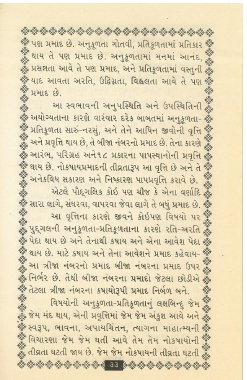 પણ પ્રમાદ છે. અનુકૂળતા ગોતવી, પ્રતિકૂળતામાં પ્રતિકાર
થાય તે પણ પ્રમાદ છે. અનુકૂળતામાં મનમાં આનંદ,
પ્રસન્નતા આવે તે પણ પ્રમાદ, અને પ્રતિકૂળતામાં વસ્તુની
યાદ આવતા અરતિ, ઉદ્વિગ્નતા, વિહ્વલતા આવે તે પણ
પ્રમાદ છે.
આ સ્વભાવની અનુપસ્થિતિ અને ઉપસ્થિતિની
અયોગ્યતાના કારણે વારંવાર દરેક બાબતમાં અનુકૂળતા-
પ્રતિકૂળતા સારું-નરસું, અને તેને આધિન જીવોની વૃત્તિ
અને પ્રવૃત્તિ થાય છે, તે બીજા નંબરનો પ્રમાદ છે. તેના કારણે
આરંભ, પરિગ્રહ અને ૧૮ પ્રકારના પાપસ્થાનોની પ્રવૃત્તિ
થાય છે. નોકષાયપ્રમાદની તીવ્રતારૂપ આ વૃત્તિ છે અને તે
અનેકવિધ સકારણ અને નિષ્કારણ પાપપ્રવૃત્તિ કરાવે છે.
એટલે પૌદ્ગલિક કોઇ પણ ચીજ કે એના વર્ણાદિ
સારા લાગે, સંઘરવા, વાપરવા જેવા લાગે તે બધું પ્રમાદ છે.
આ વૃત્તિના કારણે જીવને કોઇપણ વિષયો પર
પુદ્ગલની અનુકૂળતા-પ્રતિકૂળતાના કારણે રતિ-અરતિ
પેદા થાય છે અને તેનાથી કષાય અને એના આવેશ પેદા
થાય છે. માટે કષાય અને તેના આવેશને પ્રમાદ કહેવાય-
આ ત્રીજા નંબરનો પ્રમાદ બીજા નંબરના પ્રમાદ ઉપર
નિર્ભર છે. તેથી બીજા નંબરના પ્રમાદો જેટલા છોડીએ
તેટલા ત્રીજા નંબરના કષાયોરૂપી પ્રમાદ નિર્બળ બને.
વિષયોની અનુકૂળતા-પ્રતિકૂળતાનું લક્ષબિન્દુ જેમ
જેમ મંદ થાય, એની પ્રવૃત્તિમાં જેમ જેમ અંકુશ આવે અને
સ્વરૂપ, ભાવના, અપાયચિંતન, ત્યાગના માહાત્મ્યની
વિચારણા જેમ જેમ થતી આવે તેમ તેમ નોકષાયોની
તીવ્રતા ઘટતી જાય છે. જેમ જેમ નોકષાયની તીવ્રતા ઘટતી
33